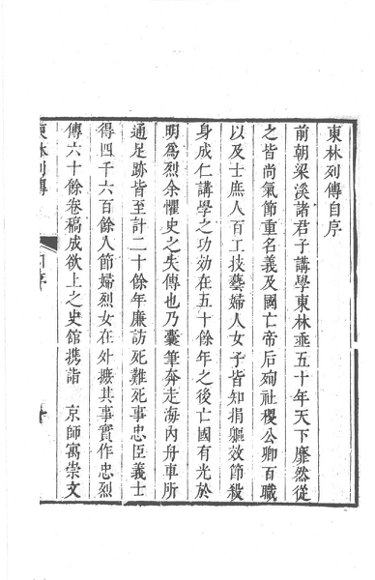 東林列傳自序
前朝梁溪諸君子講學東林垂五十年天下靡然從
之皆尚氣節重名義及國亡帝后殉社稷公卿百職
以及士庶人百工技藝婦人女子皆知捐軀效節殺
身成仁講學之功効在五十餘年之後亡國有光於
明爲烈余懼史之失傳也乃囊筆奔走海內舟車所
通足跡皆至計二十餘年廉訪死難死事忠臣義士
得四千六百餘人節婦烈女在外摭其事實作忠烈
傳六十餘卷稿成欲上之史館携詣 京師寓崇文
東林列傳 自序